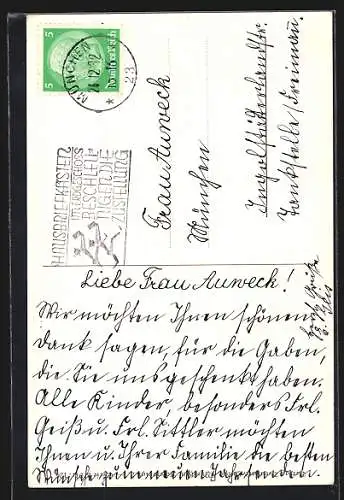 5
5
Deutsches Reich
MÜNCHEN
23
HAUSBRIEFKASTEN
IM ERDGESCHOSS
BESCHLEUNIGEN DIE
ZUSTELLUNG
Frau Auweck
München
Ingolstädterlandstr.
Tankstelle / Freimann.
Liebe Frau Auweck!
Wir möchten Ihnen schönen
Dank sagen, für die Gaben,
die Sie uns geschenkt haben.
Alle Kinder, besonders Frl.
Geiß u. Frl. Sittler möchten
Ihnen u. Ihrer Familie die besten
Wünsche zum neuen Jahr senden.